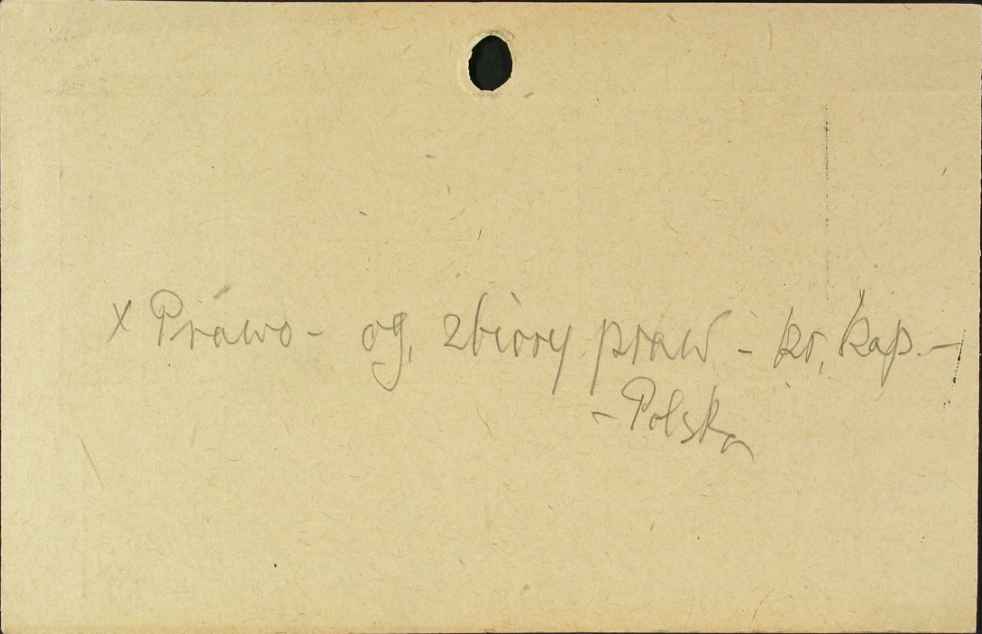 x Prawo - og. zbiory praw - kr. kap. -
- Polska